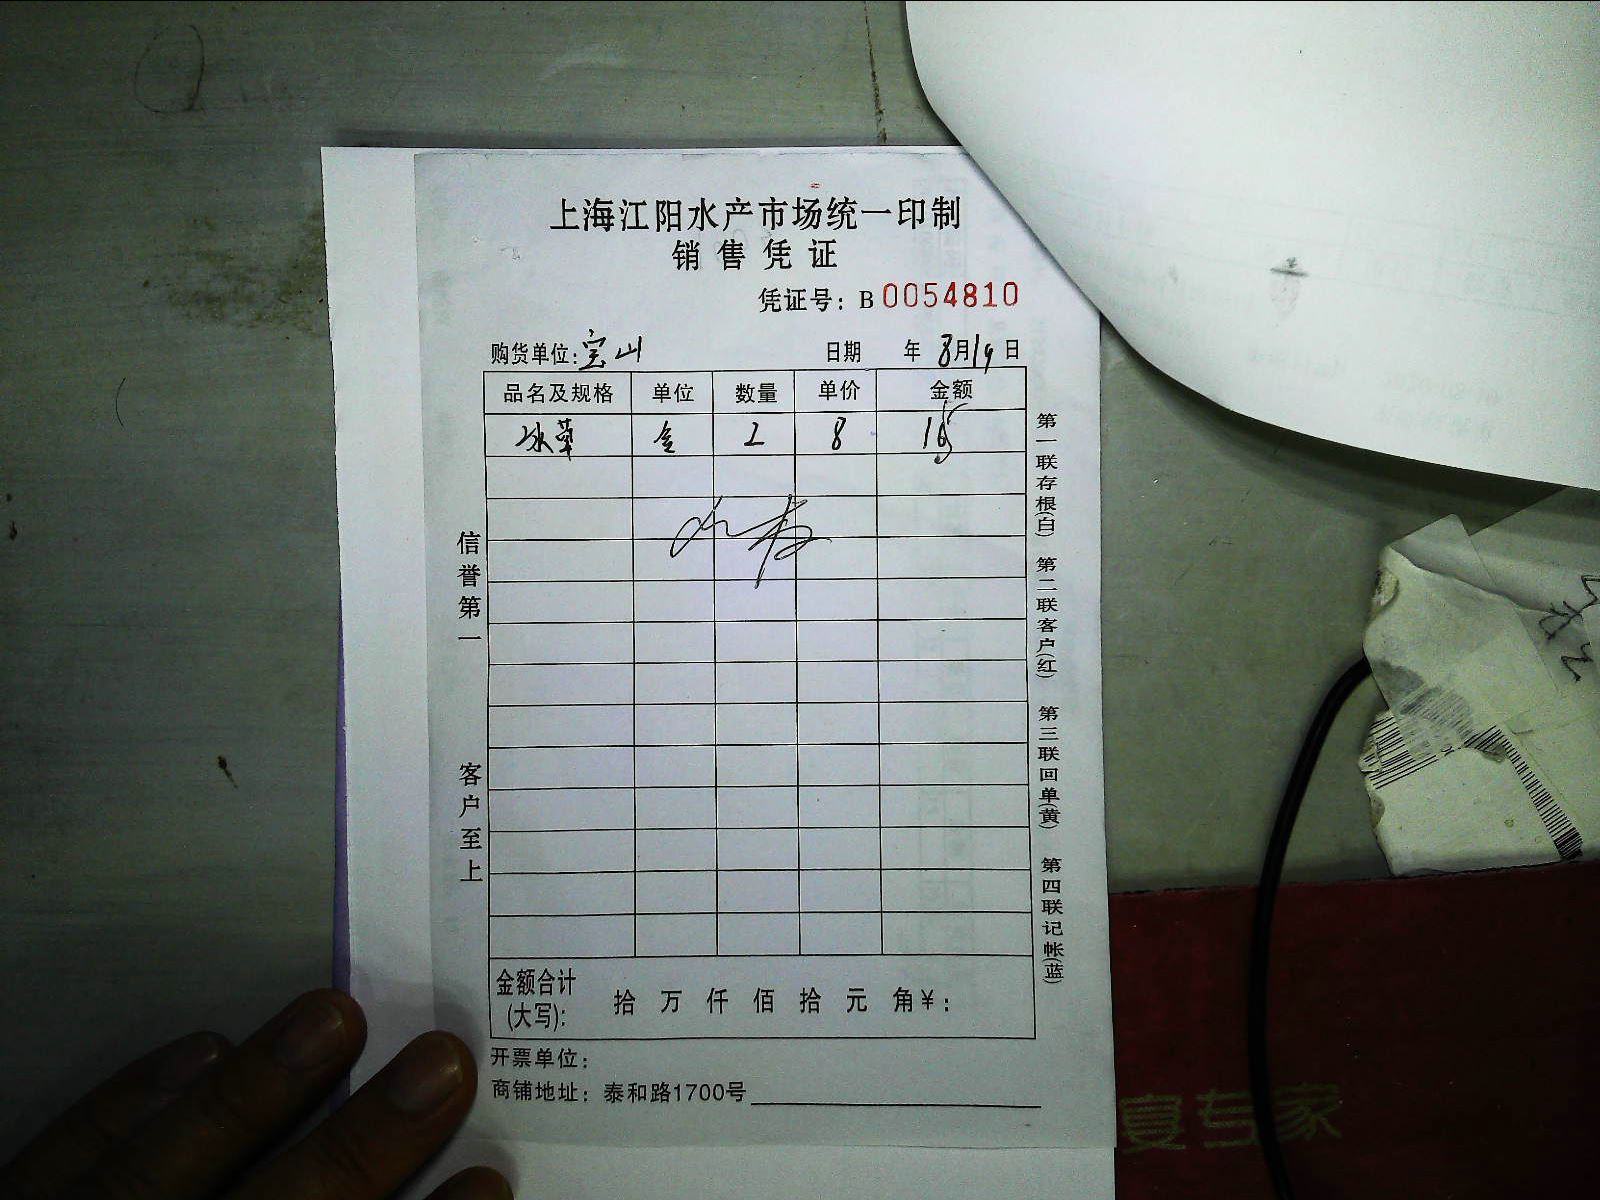 上海江阳水产市场统一印制
销售凭证
凭证号：B 0054810
购货单位：宝山 日期 年 8月19日
品名及规格 单位 数量 单价 金额
冰草 盒 2 8 16
信誉第一
客户至上
第一联存根(白) 第二联客户(红) 第三联回单(黄) 第四联记帐(蓝)
金额合计(大写)： 拾 万 仟 佰 拾 元 角 ¥：
开票单位：
商铺地址：泰和路1700号
专家